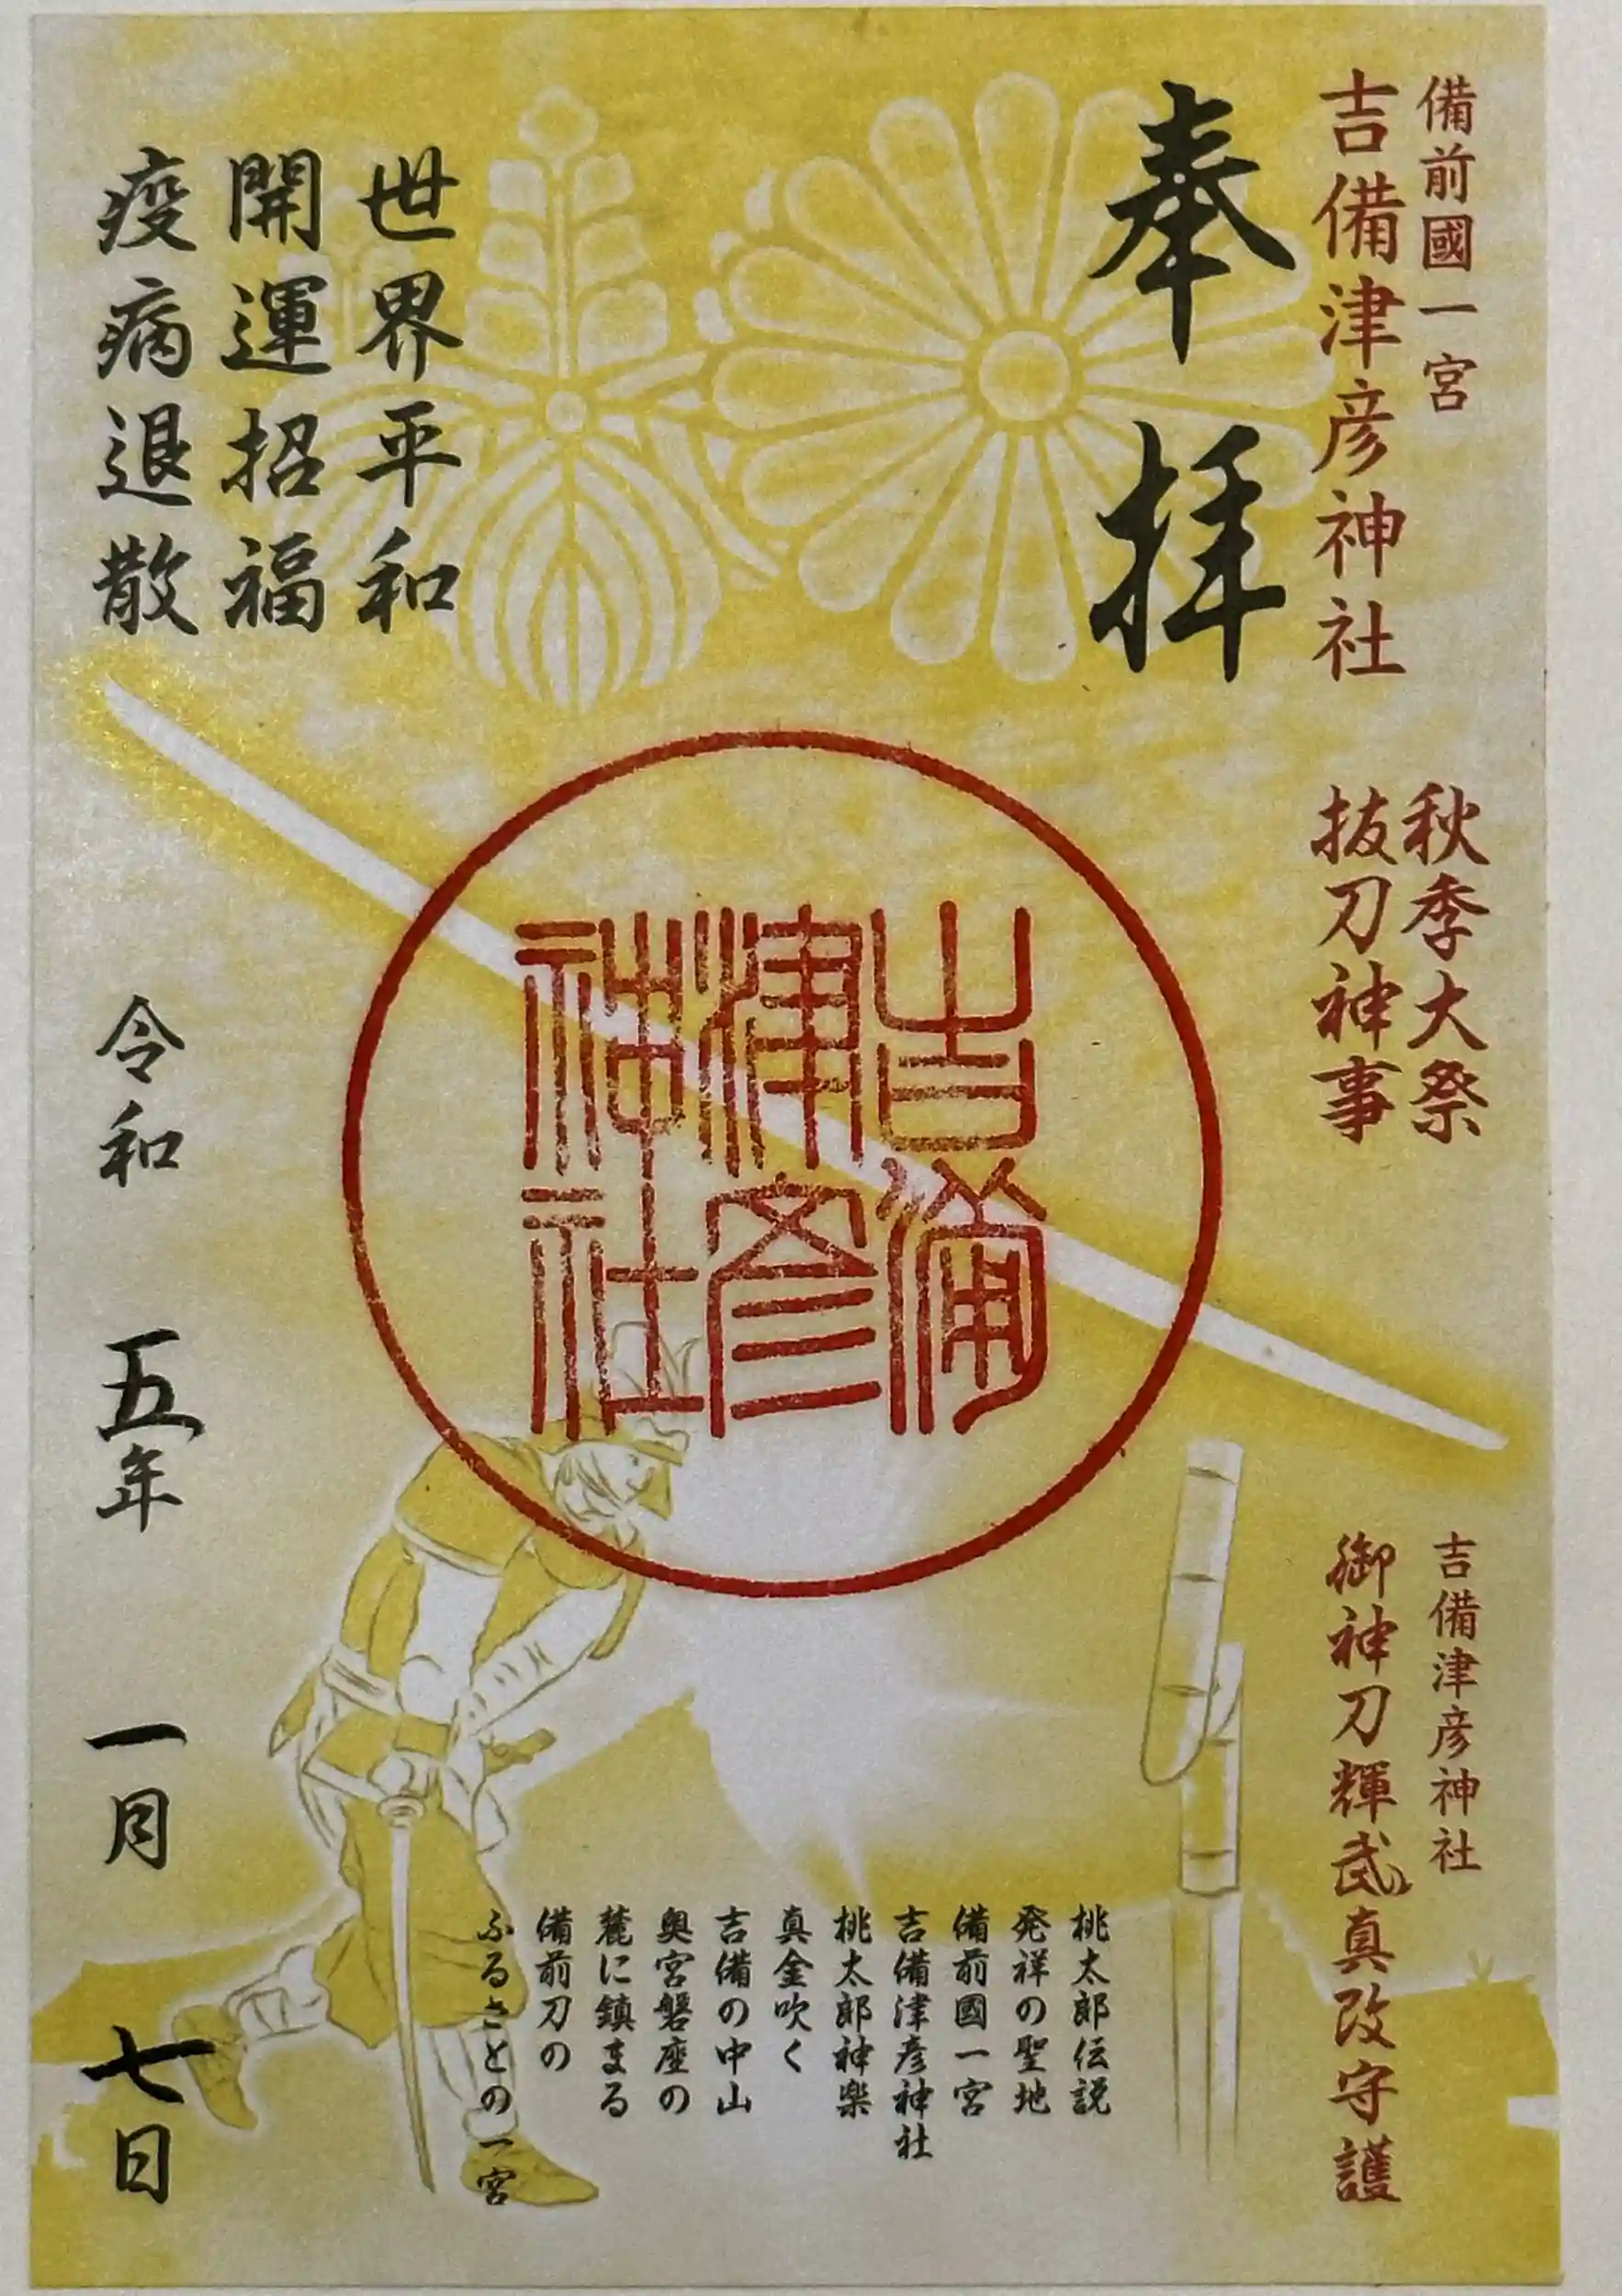 備前國一宮
吉備津彦神社
奉拝
秋季大祭
抜刀神事
吉備津彦神社
御神刀輝武真改守護
吉備
津彦
神社
世界平和
開運招福
疫病退散
令和五年一月七日
桃太郎伝説
発祥の聖地
備前國一宮
吉備津彦神社
桃太郎神楽
真金吹く
吉備の中山
奥宮磐座の
麓に鎮まる
備前刀の
ふるさとの一宮